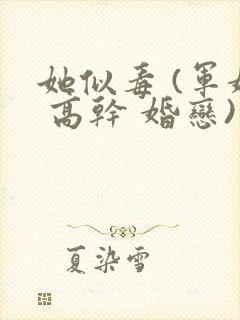 她似毒(軍
高幹 婚戀)
夏染雪